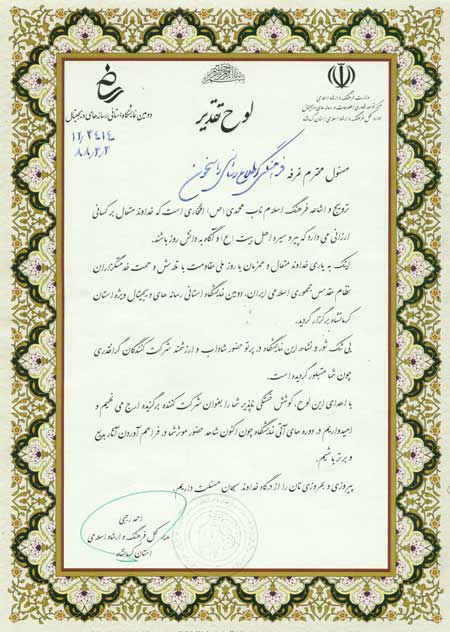 وزارت فرهنگ و ارشاد اسلامی
مرکز توسعه فناوری اطلاعات و رسانه های دیجیتال
اداره کل فرهنگ و ارشاد اسلامی استان کرمانشاه
لوح تقدیر
دومین نمایشگاه استانی رسانه های دیجیتال
۸۸,۳,۳
مسئول محترم غرفه فرهنگی و اطلاع رسانی راسخون
ترویج و اشاعه فرهنگ اسلام ناب محمدی (ص) افتخاری است که خداوند متعال بر کسانی
ارزانی می دارد که پیرو سیره اهل بیت (ع) و آگاه به دانش روز باشند.
اینک به یاری خداوند متعال و همزمان با روز ملی مقاومت با تلاش و همت خدمتگزاران
نظام مقدس جمهوری اسلامی ایران، دومین نمایشگاه استانی رسانه های دیجیتال ویژه استان
کرمانشاه برگزار گردید.
بی شک شور و نشاط این نمایشگاه در پرتو حضور شاداب و ارزشمند شرکت کنندگان گرانقدری
چون شما متبلور گردیده است.
با اهدای این لوح، کوشش خستگی ناپذیر شما را بعنوان شرکت کننده برگزیده ارج می نهیم و
امیدواریم در دوره های آتی نمایشگاه چون اکنون شاهد حضور موثر شما در فراهم آوردن آثار بدیع
و برتر باشیم.
پیروزی و بهروزی تان را از درگاه خداوند سبحان مسئلت داریم.
احمد رجبی
مدیر کل فرهنگ و ارشاد اسلامی
استان کرمانشاه